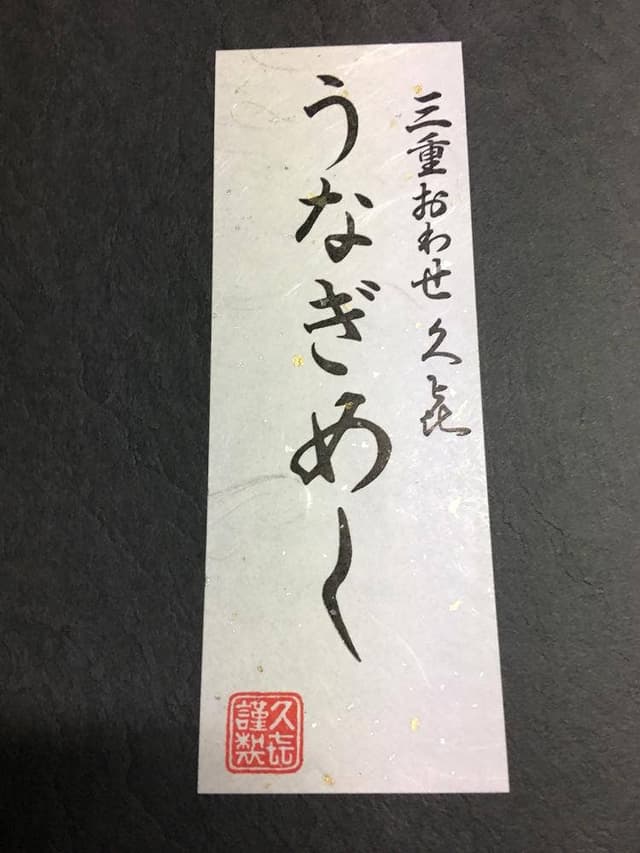 三重おわせ 久㐂
うなぎめし
久㐂
謹製